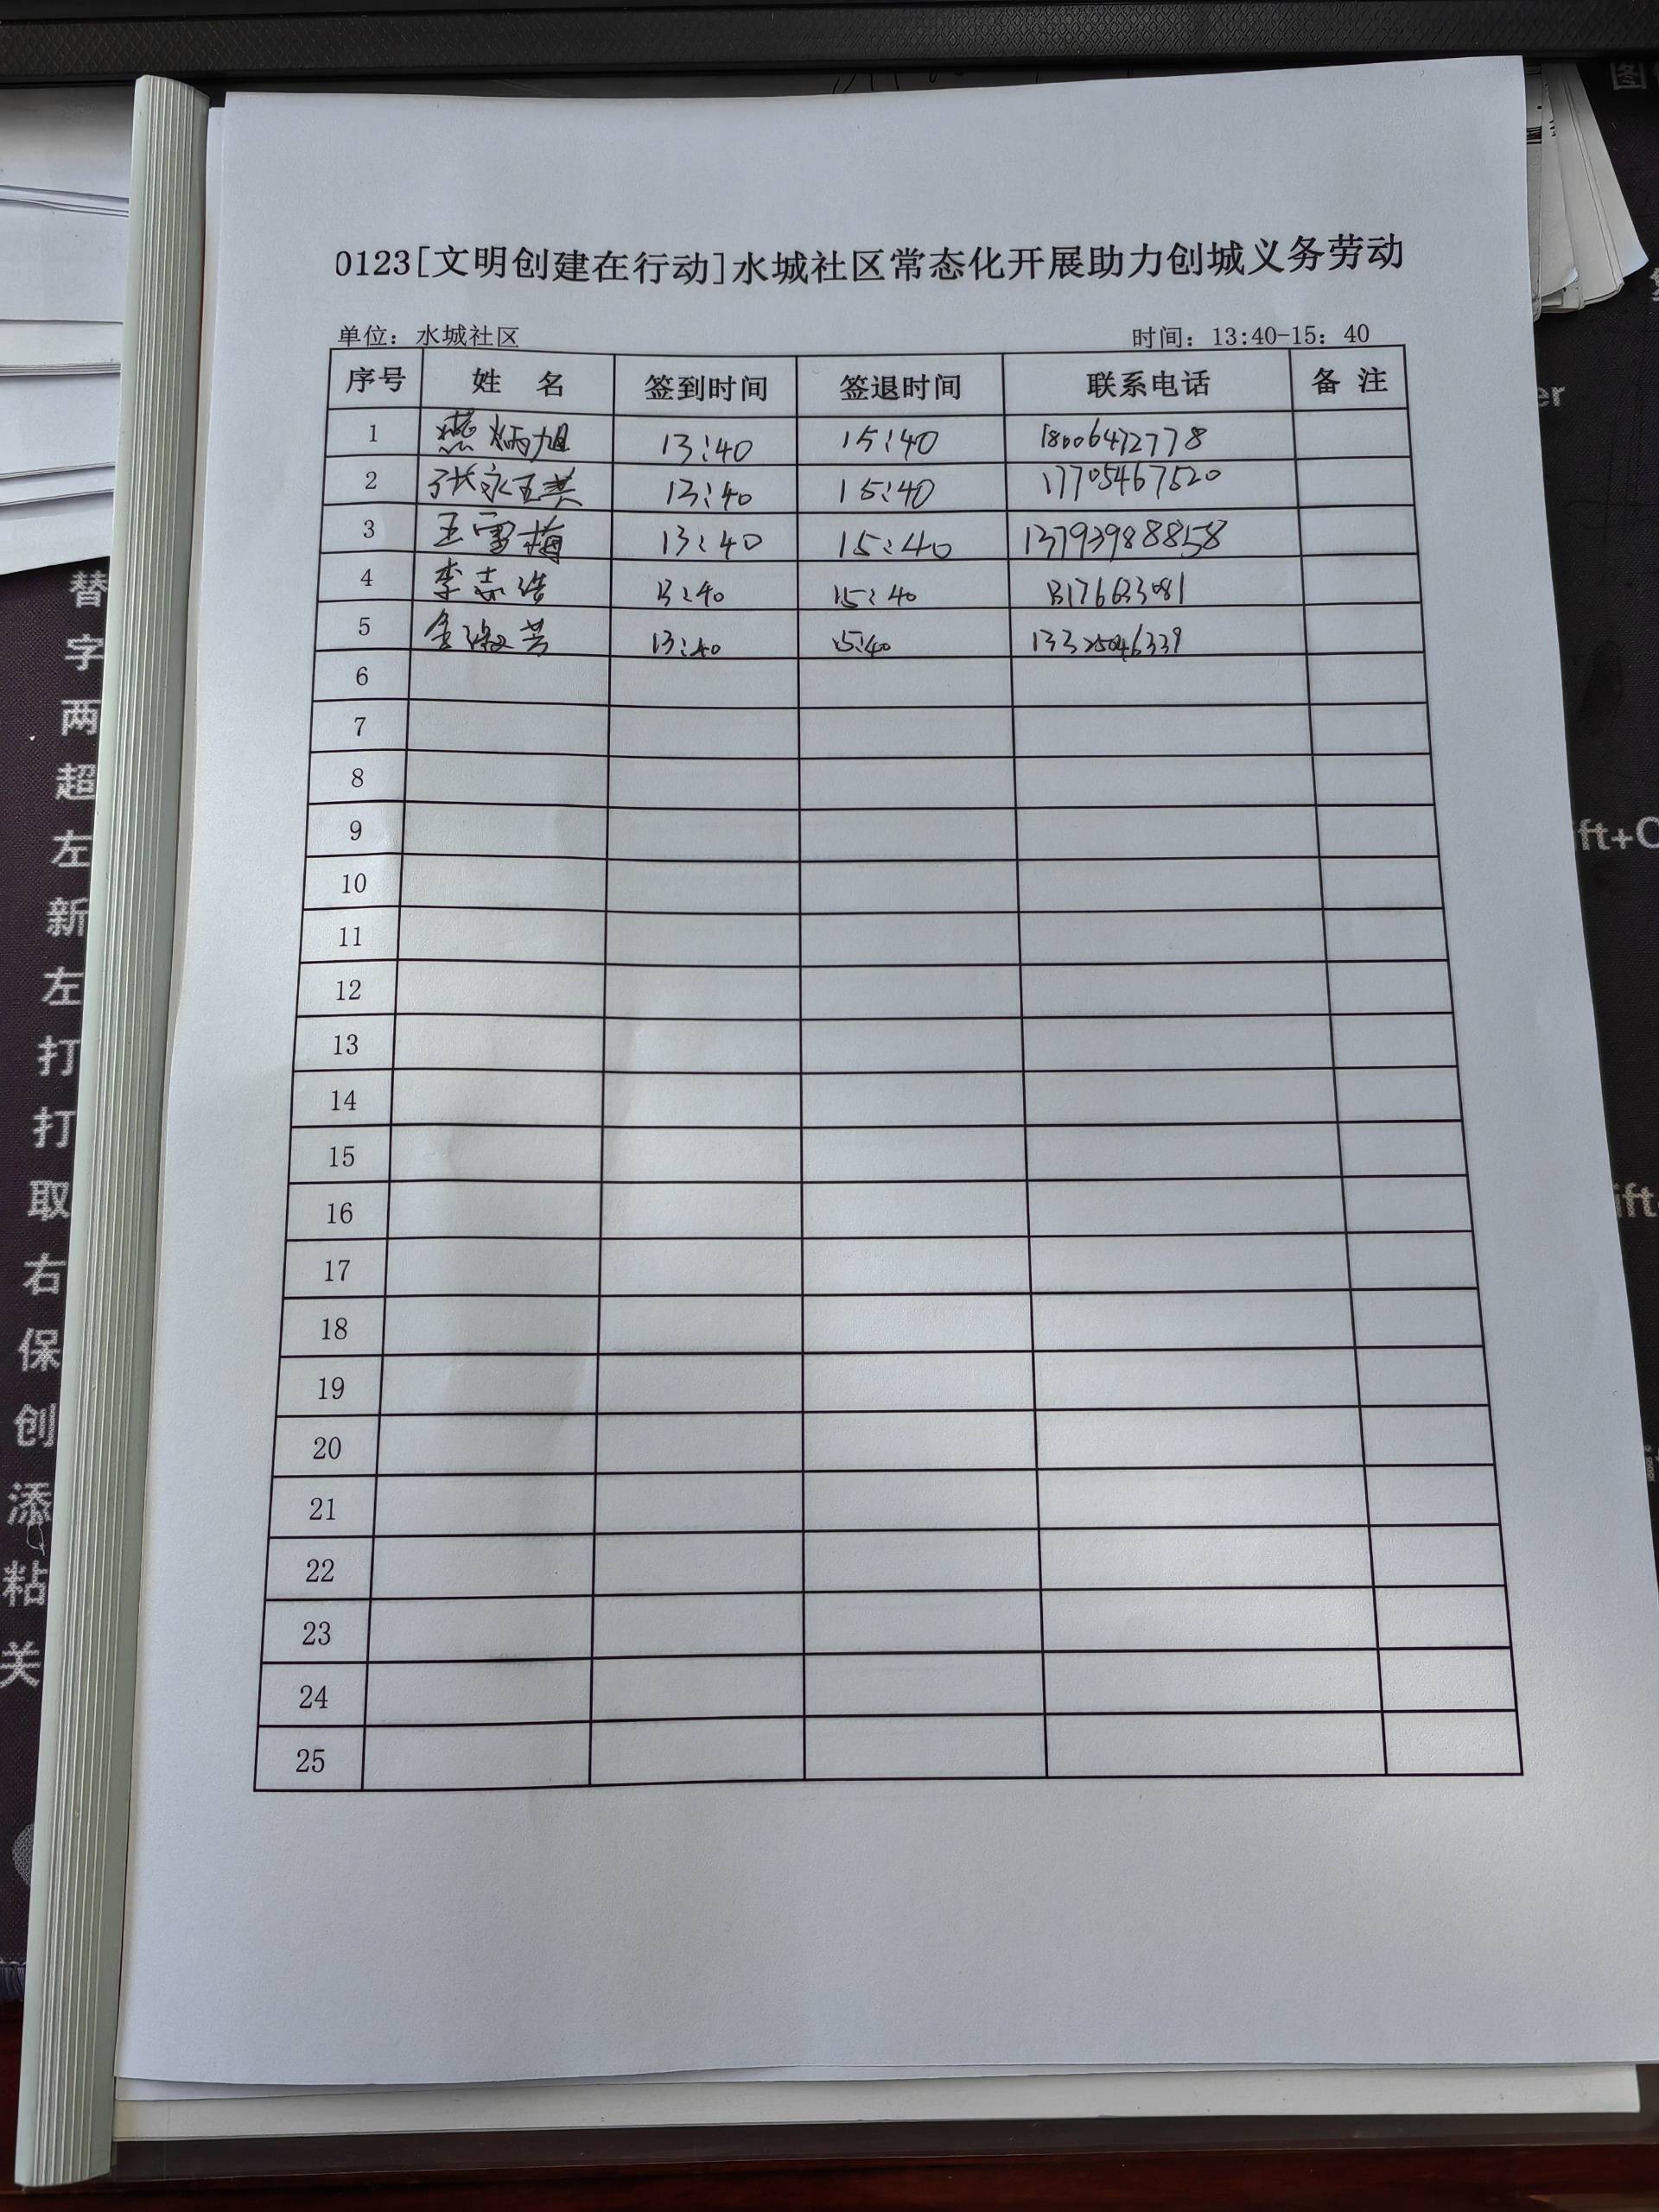 0123[文明创建在行动]水城社区常态化开展助力创城义务劳动
单位：水城社区 时间：13:40-15：40
序号 姓 名 签到时间 签退时间 联系电话 备 注
1 燕炳旭 13:40 15:40 18006472778
2 张永 13:40 15:40 17705467520
3 王雪梅 13:40 15:40 13793988858
4 李志浩 13:40 15:40
5 金淑芳 13:40 15:40 13325046339
6
7
8
9
10
11
12
13
14
15
16
17
18
19
20
21
22
23
24
25
替
字
两
超
左
新
左
打
打
取
右
保
创
添
粘
关
图
er
ift+C
ift